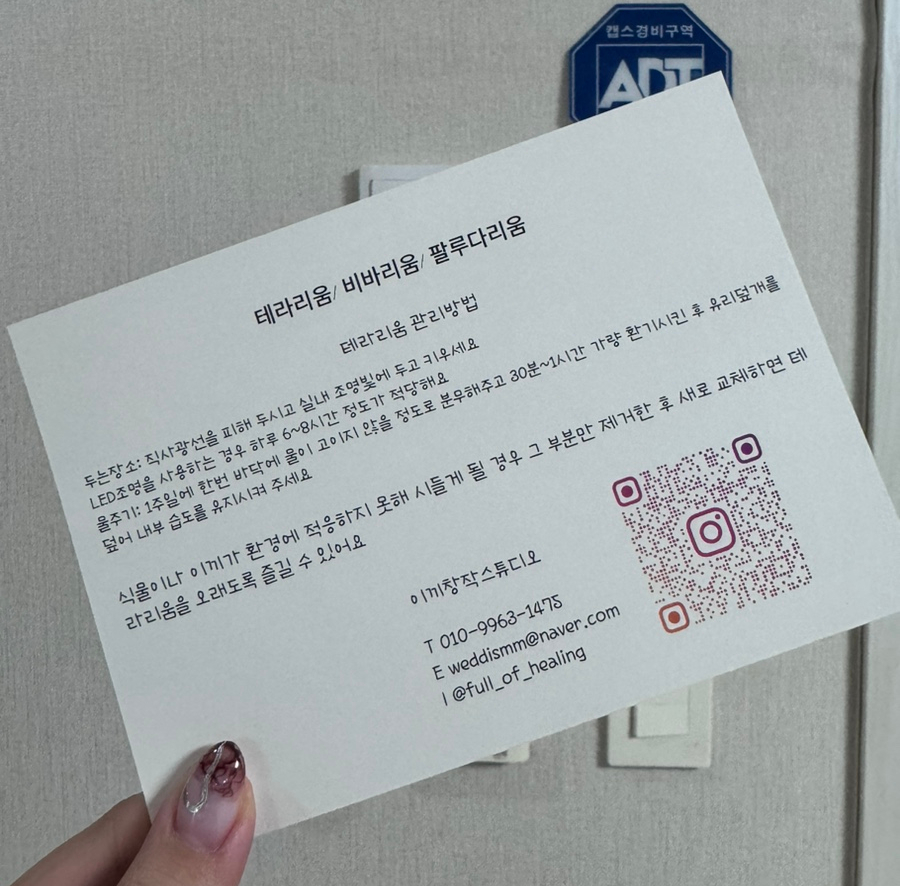 캡스경비구역
ADT
테라리움/ 비바리움/ 팔루다리움
테라리움 관리방법
두는장소: 직사광선을 피해 두시고 실내 조명빛에 두고 키우세요
LED조명을 사용하는 경우 하루 6~8시간 정도가 적당해요
물주기: 1주일에 한번 바닥에 물이 고이지 않을 정도로 분무해주고 30분~1시간 가량 환기시킨 후 유리덮개를
덮어 내부 습도를 유지시켜 주세요
식물이나 이끼가 환경에 적응하지 못해 시들게 될 경우 그 부분만 제거한 후 새로 교체하면 테
라리움을 오래도록 즐길 수 있어요
이끼창작스튜디오
T 010-9963-1475
E weddismm@naver.com
I @full_of_healing